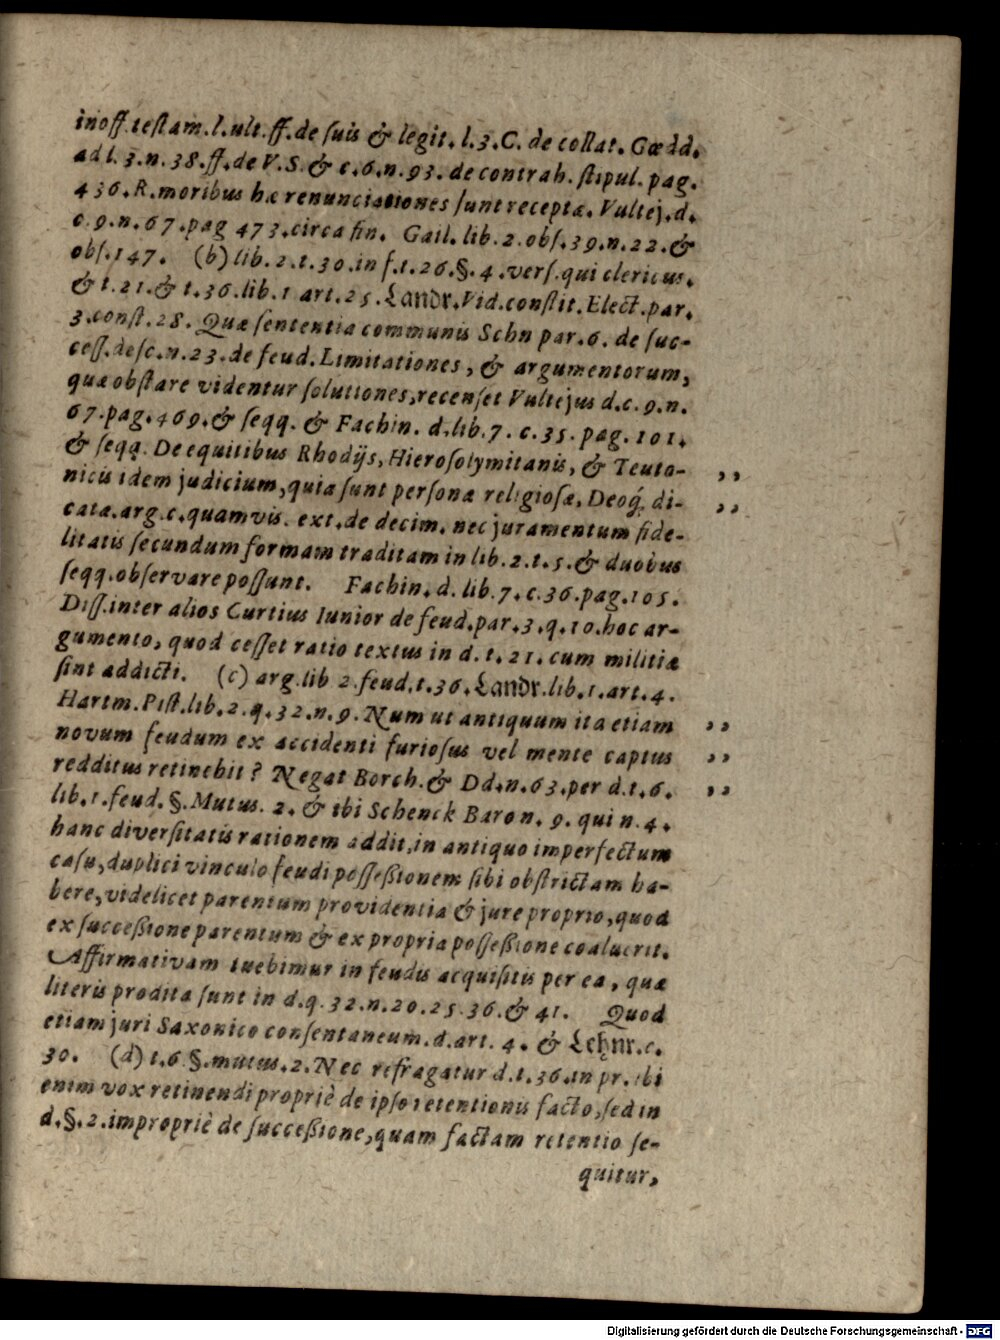 inoff.testam.l.ult.ff.de suis & legit. l.3.C. de collat. Gœdd.
ad l.3.n.38.ff.de V.S. & c.6.n.93. de contrah. stipul. pag.
436.R.moribus hæ renunciationes sunt receptæ. Vultej.d.
c.9.n.67.pag 473.circa fin. Gail. lib.2.obs.39.n.22.&
obs.147. (b) lib.2.t.30.in f.t.26.§.4.vers.qui clericus.
& t.21.& t.36.lib.1 art.25.Landr.Vid.constit.Elect.par.
3.const.28. Quæ sententia communis Schn par.6. de suc-
cess.desc.n.23.de feud.Limitationes, & argumentorum,
quæ obstare videntur solutiones,recenset Vultejus d.c.9.n.
67.pag.469.& seqq. & Fachin. d.lib.7. c.35. pag.101.
& seqq. De equitibus Rhodijs, Hierosolymitanis, & Teuto- ,,
nicis idem judicium,quia sunt personæ religiosæ, Deoq́; di- ,,
catæ.arg.c.quamvis. ext.de decim. nec juramentum fide-
litatis secundum formam traditam in lib.2.t.5.& duobus
seqq.observare possunt. Fachin.d.lib.7.c.36.pag.105.
Diss.inter alios Curtius Iunior de feud.par.3.q.10.hoc ar-
gumento, quod cesset ratio textus in d.t.21.cum militiæ
sint addicti. (c) arg.lib 2.feud.t.36.Landr.lib.1.art.4.
Hartm.Pist.lib.2.q.32.n.9.Num ut antiquum ita etiam ,,
novum feudum ex accidenti furiosus vel mente captus ,,
redditus retinebit? Negat Borch.& Dd.n.63.per d.t.6. ,,
lib.1.feud.§.Mutus. 2.& ibi Schenck Baro n. 9. qui n.4.
hanc diversitatis rationem addit,in antiquo imperfectum
casu,duplici vinculo feudi possessionem sibi obstrictam ha-
bere,videlicet parentum providentia & jure proprio,quod
ex successione parentum & ex propria possessione coaluerit.
Affirmativam tuebimur in feudis acquisitis per ea, quæ
literis prodita sunt in d.q.32.n.20.25.36.& 41. Quod
etiam juri Saxonico consentaneum.d.art. 4. & Lehnr.c.
30. (d) t.6.§.mutus.2.Nec refragatur d.t.36.in pr.ibi
enim vox retinendi propriè de ipso retentionis facto,sed in
d.§.2.impropriè de successione,quam factam retentio se-
quitur,
Digitalisierung gefördert durch die Deutsche Forschungsgemeinschaft - DFG